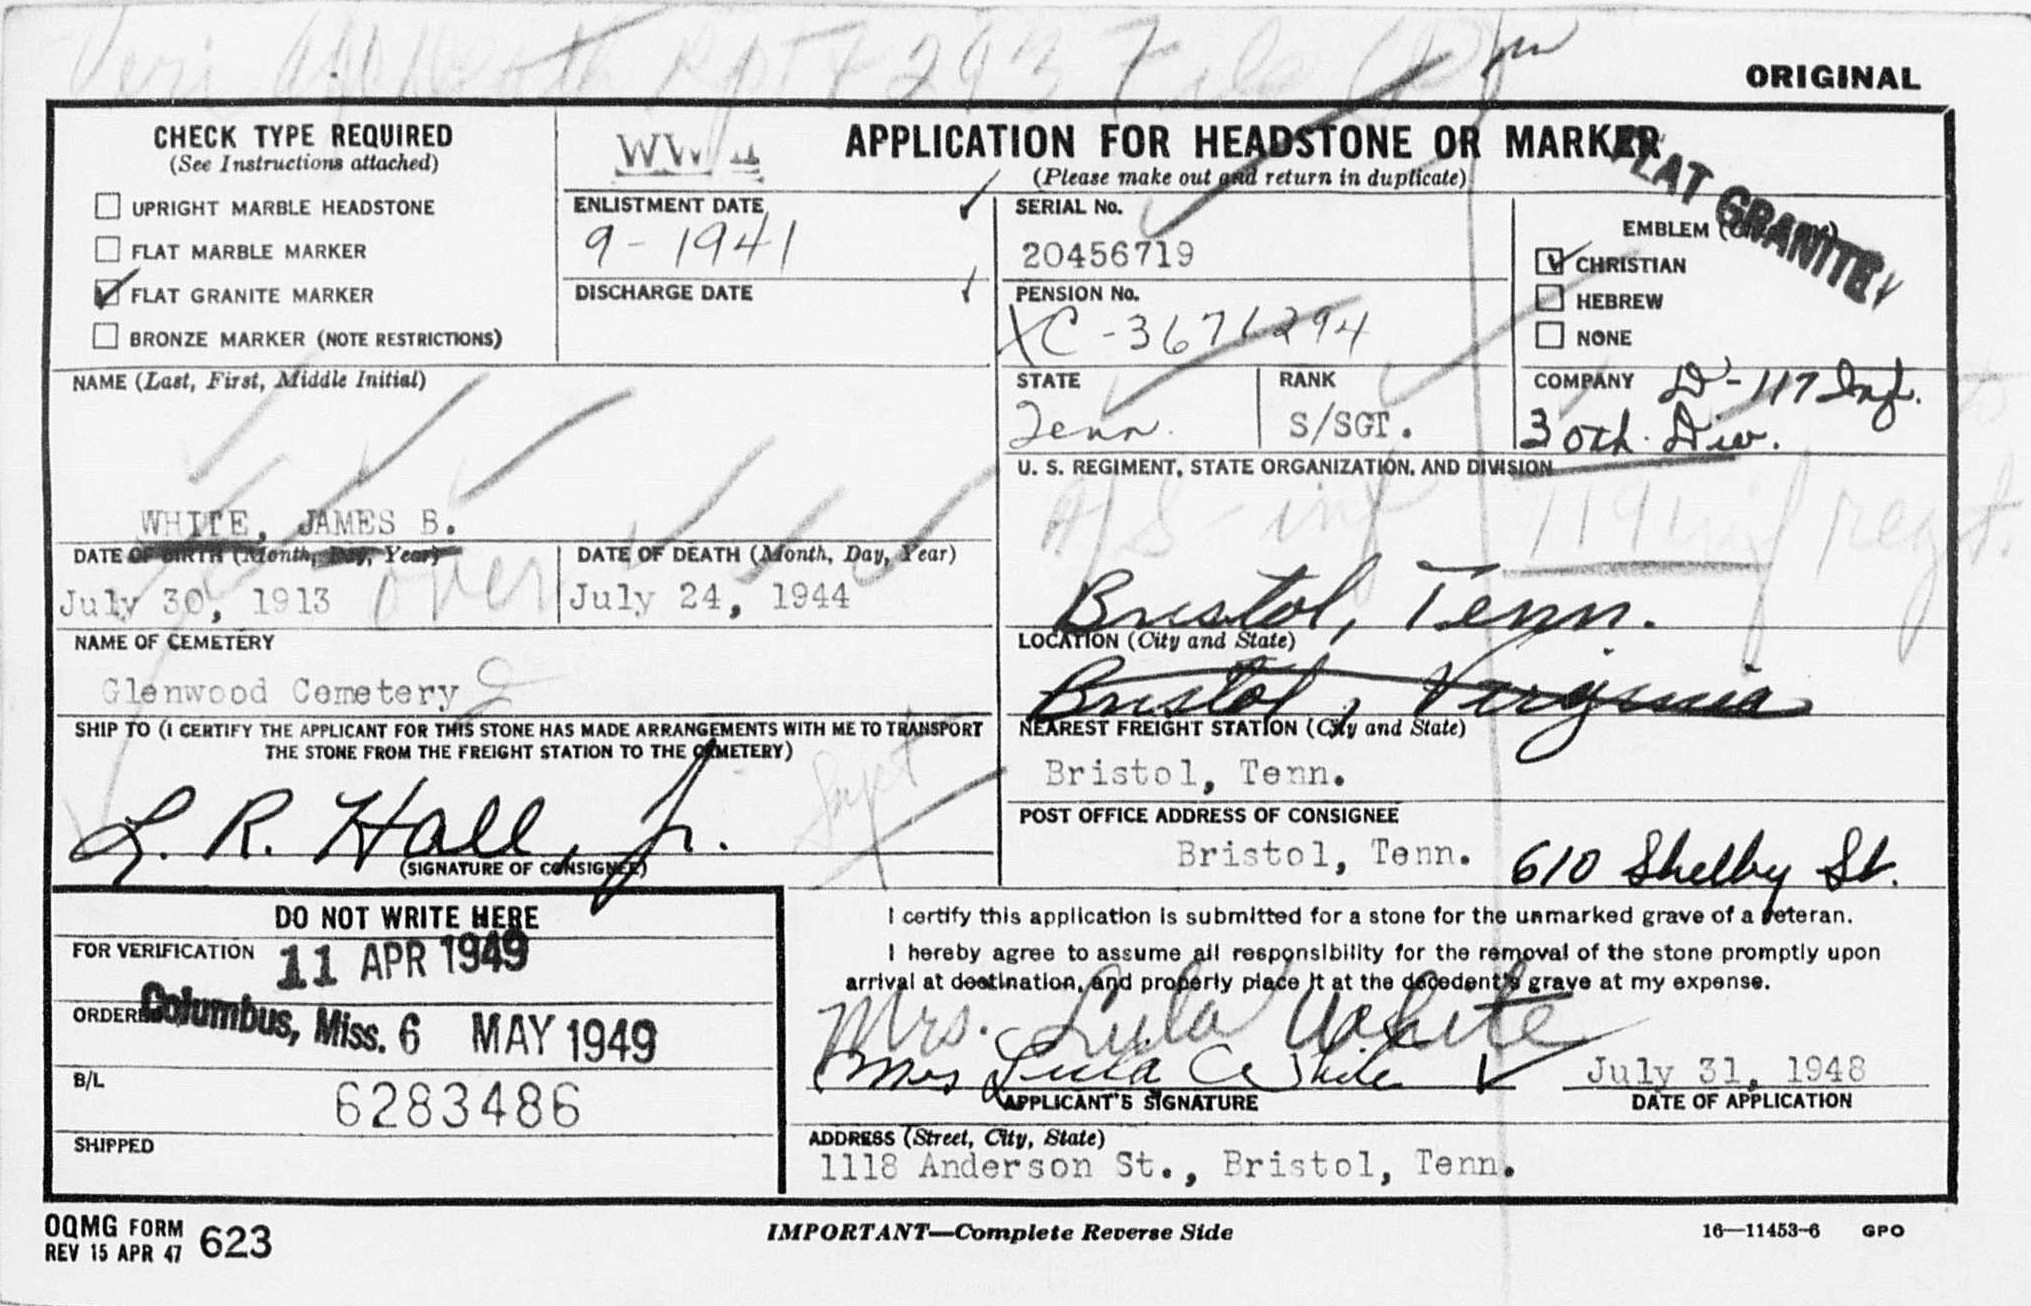 ORIGINAL
CHECK TYPE REQUIRED
(See Instructions attached)
UPRIGHT MARBLE HEADSTONE
FLAT MARBLE MARKER
FLAT GRANITE MARKER
BRONZE MARKER (NOTE RESTRICTIONS)
WW II
APPLICATION FOR HEADSTONE OR MARKER
(Please make out and return in duplicate)
FLAT GRANITE
ENLISTMENT DATE
9-1941
DISCHARGE DATE
SERIAL No.
20456719
PENSION No.
XC-3671294
EMBLEM
CHRISTIAN
HEBREW
NONE
NAME (Last, First, Middle Initial)
WHITE, JAMES B.
STATE
Tenn.
RANK
S/SGT.
COMPANY D-117 Inf.
30th. Div.
U. S. REGIMENT, STATE ORGANIZATION, AND DIVISION
119 inf regt.
Bristol, Tenn.
DATE OF BIRTH (Month, Day, Year)
July 30, 1913
over
DATE OF DEATH (Month, Day, Year)
July 24, 1944
NAME OF CEMETERY
Glenwood Cemetery
LOCATION (City and State)
Bristol, Virginia
SHIP TO (I CERTIFY THE APPLICANT FOR THIS STONE HAS MADE ARRANGEMENTS WITH ME TO TRANSPORT
THE STONE FROM THE FREIGHT STATION TO THE CEMETERY)
L. R. Hall, Jr.
(SIGNATURE OF CONSIGNEE)
NEAREST FREIGHT STATION (City and State)
Bristol, Tenn.
POST OFFICE ADDRESS OF CONSIGNEE
Bristol, Tenn. 610 Shelby St.
DO NOT WRITE HERE
FOR VERIFICATION 11 APR 1949
ORDERED Columbus, Miss. 6 MAY 1949
B/L
6283486
SHIPPED
I certify this application is submitted for a stone for the unmarked grave of a veteran.
I hereby agree to assume all responsibility for the removal of the stone promptly upon
arrival at destination, and properly place it at the decedent's grave at my expense.
Mrs. Lula White
Mrs Lula C White
APPLICANT'S SIGNATURE
July 31, 1948
DATE OF APPLICATION
ADDRESS (Street, City, State)
1118 Anderson St., Bristol, Tenn.
OQMG FORM 623
REV 15 APR 47
IMPORTANT—Complete Reverse Side
16—11453-6 GPO